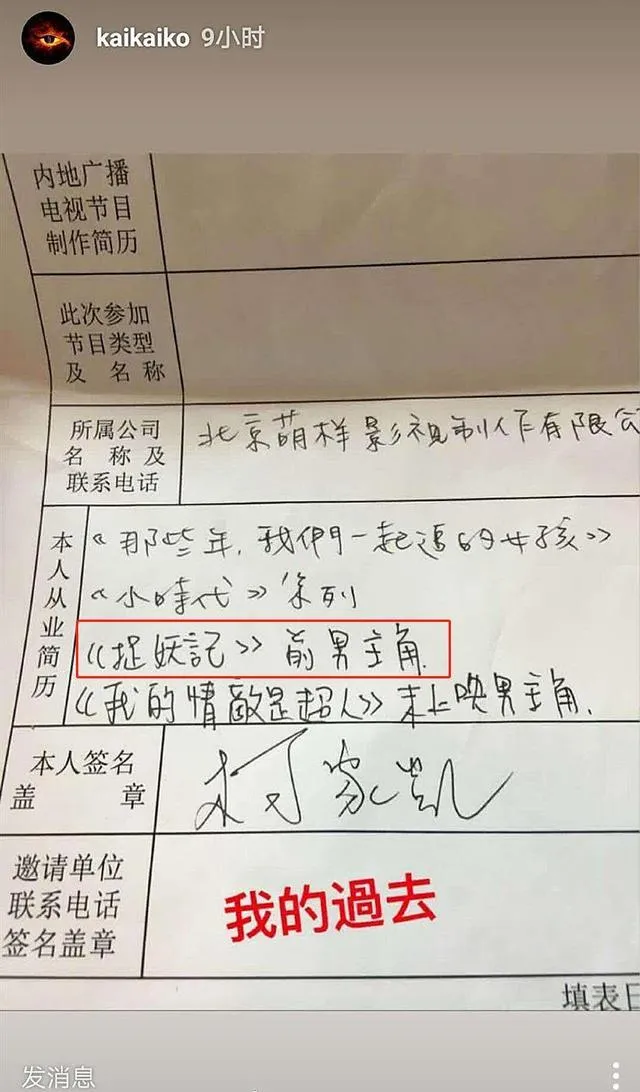 kaikaiko 9小时
内地广播
电视节目
制作简历
此次参加
节目类型
及名称
所属公司
名称及
联系电话
北京萌样影视制作有限公
本人从业简历
《那些年,我們一起追的女孩》
《小時代》系列
《捉妖記》前男主角.
《我的情敵是超人》未上映男主角.
本人签名
盖章
柯家凯
邀请单位
联系电话
签名盖章
我的過去
填表日
发消息